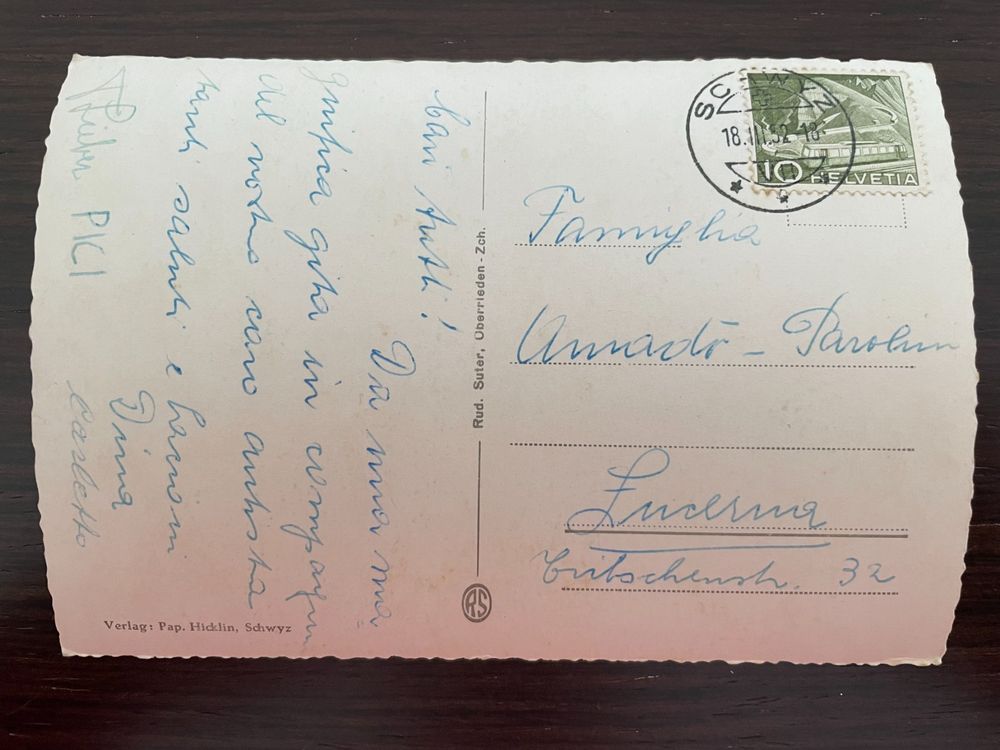 Cari tutti!
Da una ma-
gnifica gita in compagnia
del vostro caro artista
tanti saluti e bacioni
Dina
Carletto
PKI
Verlag: Pap. Hicklin, Schwyz
Rud. Suter, Oberrieden - Zch.
RS
SCHWYZ
18.III.52-18
10 HELVETIA
Famiglia
Amadò - Parolini
Lucerna
Tribschenstr. 32